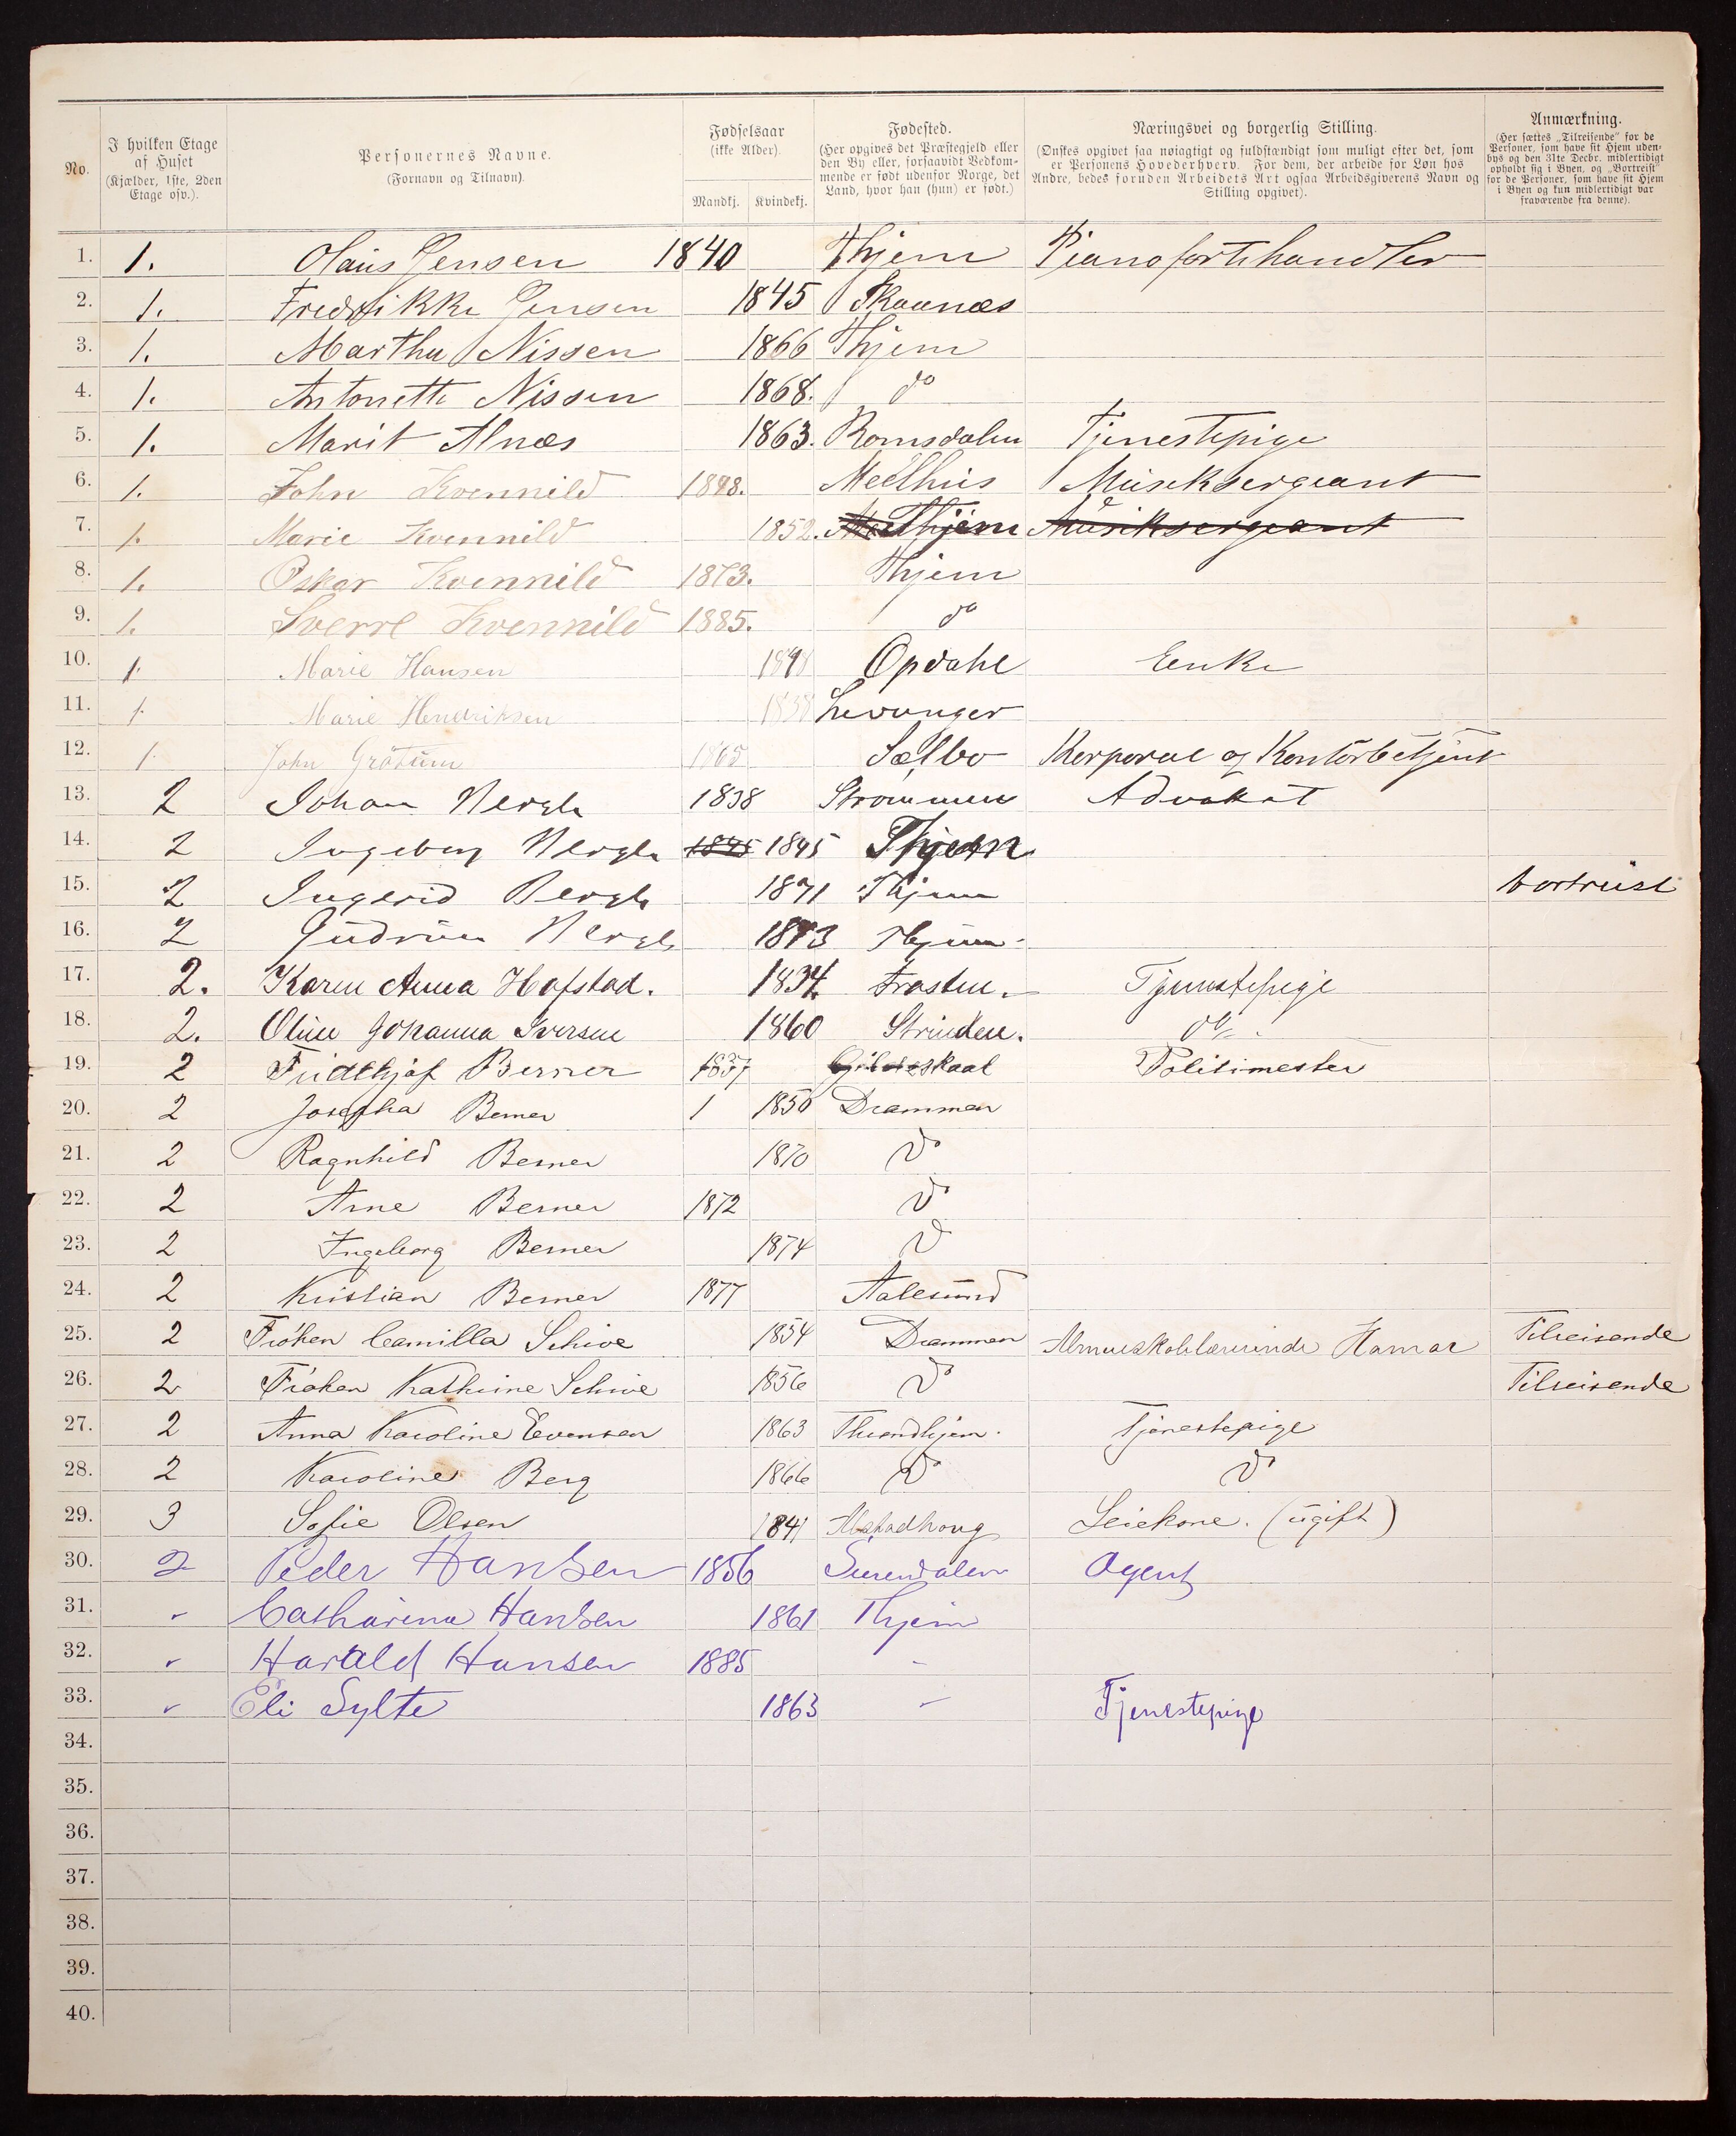 No.
I hvilken Etage af Huset (Kjælder, 1ste, 2den Etage osv.).
Personernes Navne. (Fornavn og Tilnavn).
Fødselsaar (ikke Alder).
Mandkj. Kvindekj.
Fødested. (Her opgives det Præstegjeld eller den By eller, forsaavidt Vedkommende er født udenfor Norge, det Land, hvor han (hun) er født.)
Næringsvei og borgerlig Stilling. (Ønskes opgivet saa nøiagtigt og fuldstændigt som muligt efter det, som er Personens Hovederhverv. For dem, der arbeide for Løn hos Andre, bedes foruden Arbeidets Art ogsaa Arbeidsgiverens Navn og Stilling opgivet).
Anmærkning. (Her sættes „Tilreisende“ for de Personer, som have sit Hjem udenbys og den 31te Decbr. midlertidigt opholdt sig i Byen, og „Bortreist“ for de Personer, som have sit Hjem i Byen og kun midlertidigt var fraværende fra denne).
1. 1. Olaus Jensen 1840 Thjem Pianofortehandler
2. 1. Fredrikke Jensen 1845 Skaanæs
3. 1. Martha Nissen 1866 Thjem
4. 1. Antonette Nissen 1868. do
5. 1. Marit Alnæs 1863. Romsdalen Tjenestepige
6. 1. John Kvennild 1848. Meelhus Musiksergeant
7. 1. Marie Kvennild 1852. Thjem Musiksergeant
8. 1. Oskar Kvennild 1873. Thjem
9. 1. Sverre Kvennild 1885. do
10. 1. Marie Hansen 1848 Opdahl Enke
11. 1. Marie Hendriksen 1838 Levanger
12. 1. John Grötüm 1865 Sælbo Korporal og Kontorbetjent
13. 2 Johan Bergh 1838 Strømmen Advokat
14. 2 Ingeborg Bergh 1845 1845 Thjem
15. 2 Ingerid Bergh 1871 Thjem bortreist
16. 2 Gudrun Bergh 1873 Thjem
17. 2. Karen Anna Hofstad. 1834. Frosten. Tjenestepige
18. 2. Oline Johanna Iversen 1860 Strinden. do
19. 2 Fridthjof Berner 1837 Gildeskaal Politimester
20. 2 Josepha Berner 1 1850 Drammen
21. 2 Ragnhild Berner 1870 do
22. 2 Arne Berner 1872 do
23. 2 Ingeborg Berner 1874 do
24. 2 Kristian Berner 1877 Aalesund
25. 2 Frøken Camilla Schive 1854 Drammen Almueskolelærerinde Hamar Tilreisende
26. 2 Frøken Kathrine Schive 1856 do Tilreisende
27. 2 Anna Karoline Evensen 1863 Throndhjem. Tjenestepige
28. 2 Karoline Berg 1866 do do
29. 3 Sofie Olsen 1841 Alstadhoug Leiekone. (ugift)
30. 2 Peder Hansen 1856 Surendalen Agent
31. " Catharina Hansen 1861 Thjem
32. " Harald Hansen 1885 "
33. " Eli Sylte 1863 " Tjenestepige
34.
35.
36.
37.
38.
39.
40.